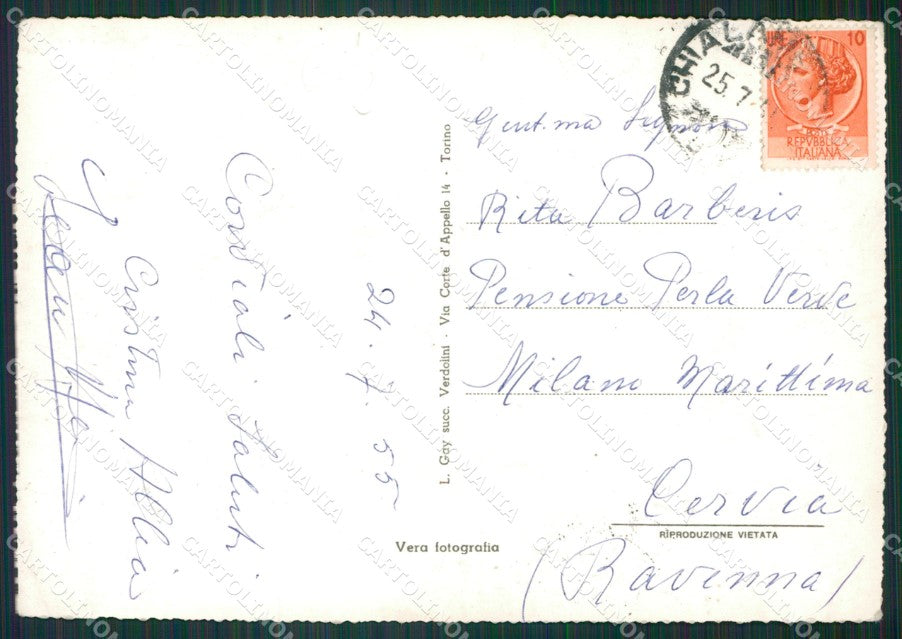 24.7.55
Cordiali Saluti
Cristina
L. Gay succ. Verdolini · Via Corte d'Appello 14 · Torino
Vera fotografia
CHIALAM
25.7
10
REPVBBLICA
ITALIANA
Gent.ma Signora
Rita Barberis
Pensione Perla Verde
Milano Marittima
Cervia
RIPRODUZIONE VIETATA
(Ravenna)
CARTOLINOMANIA